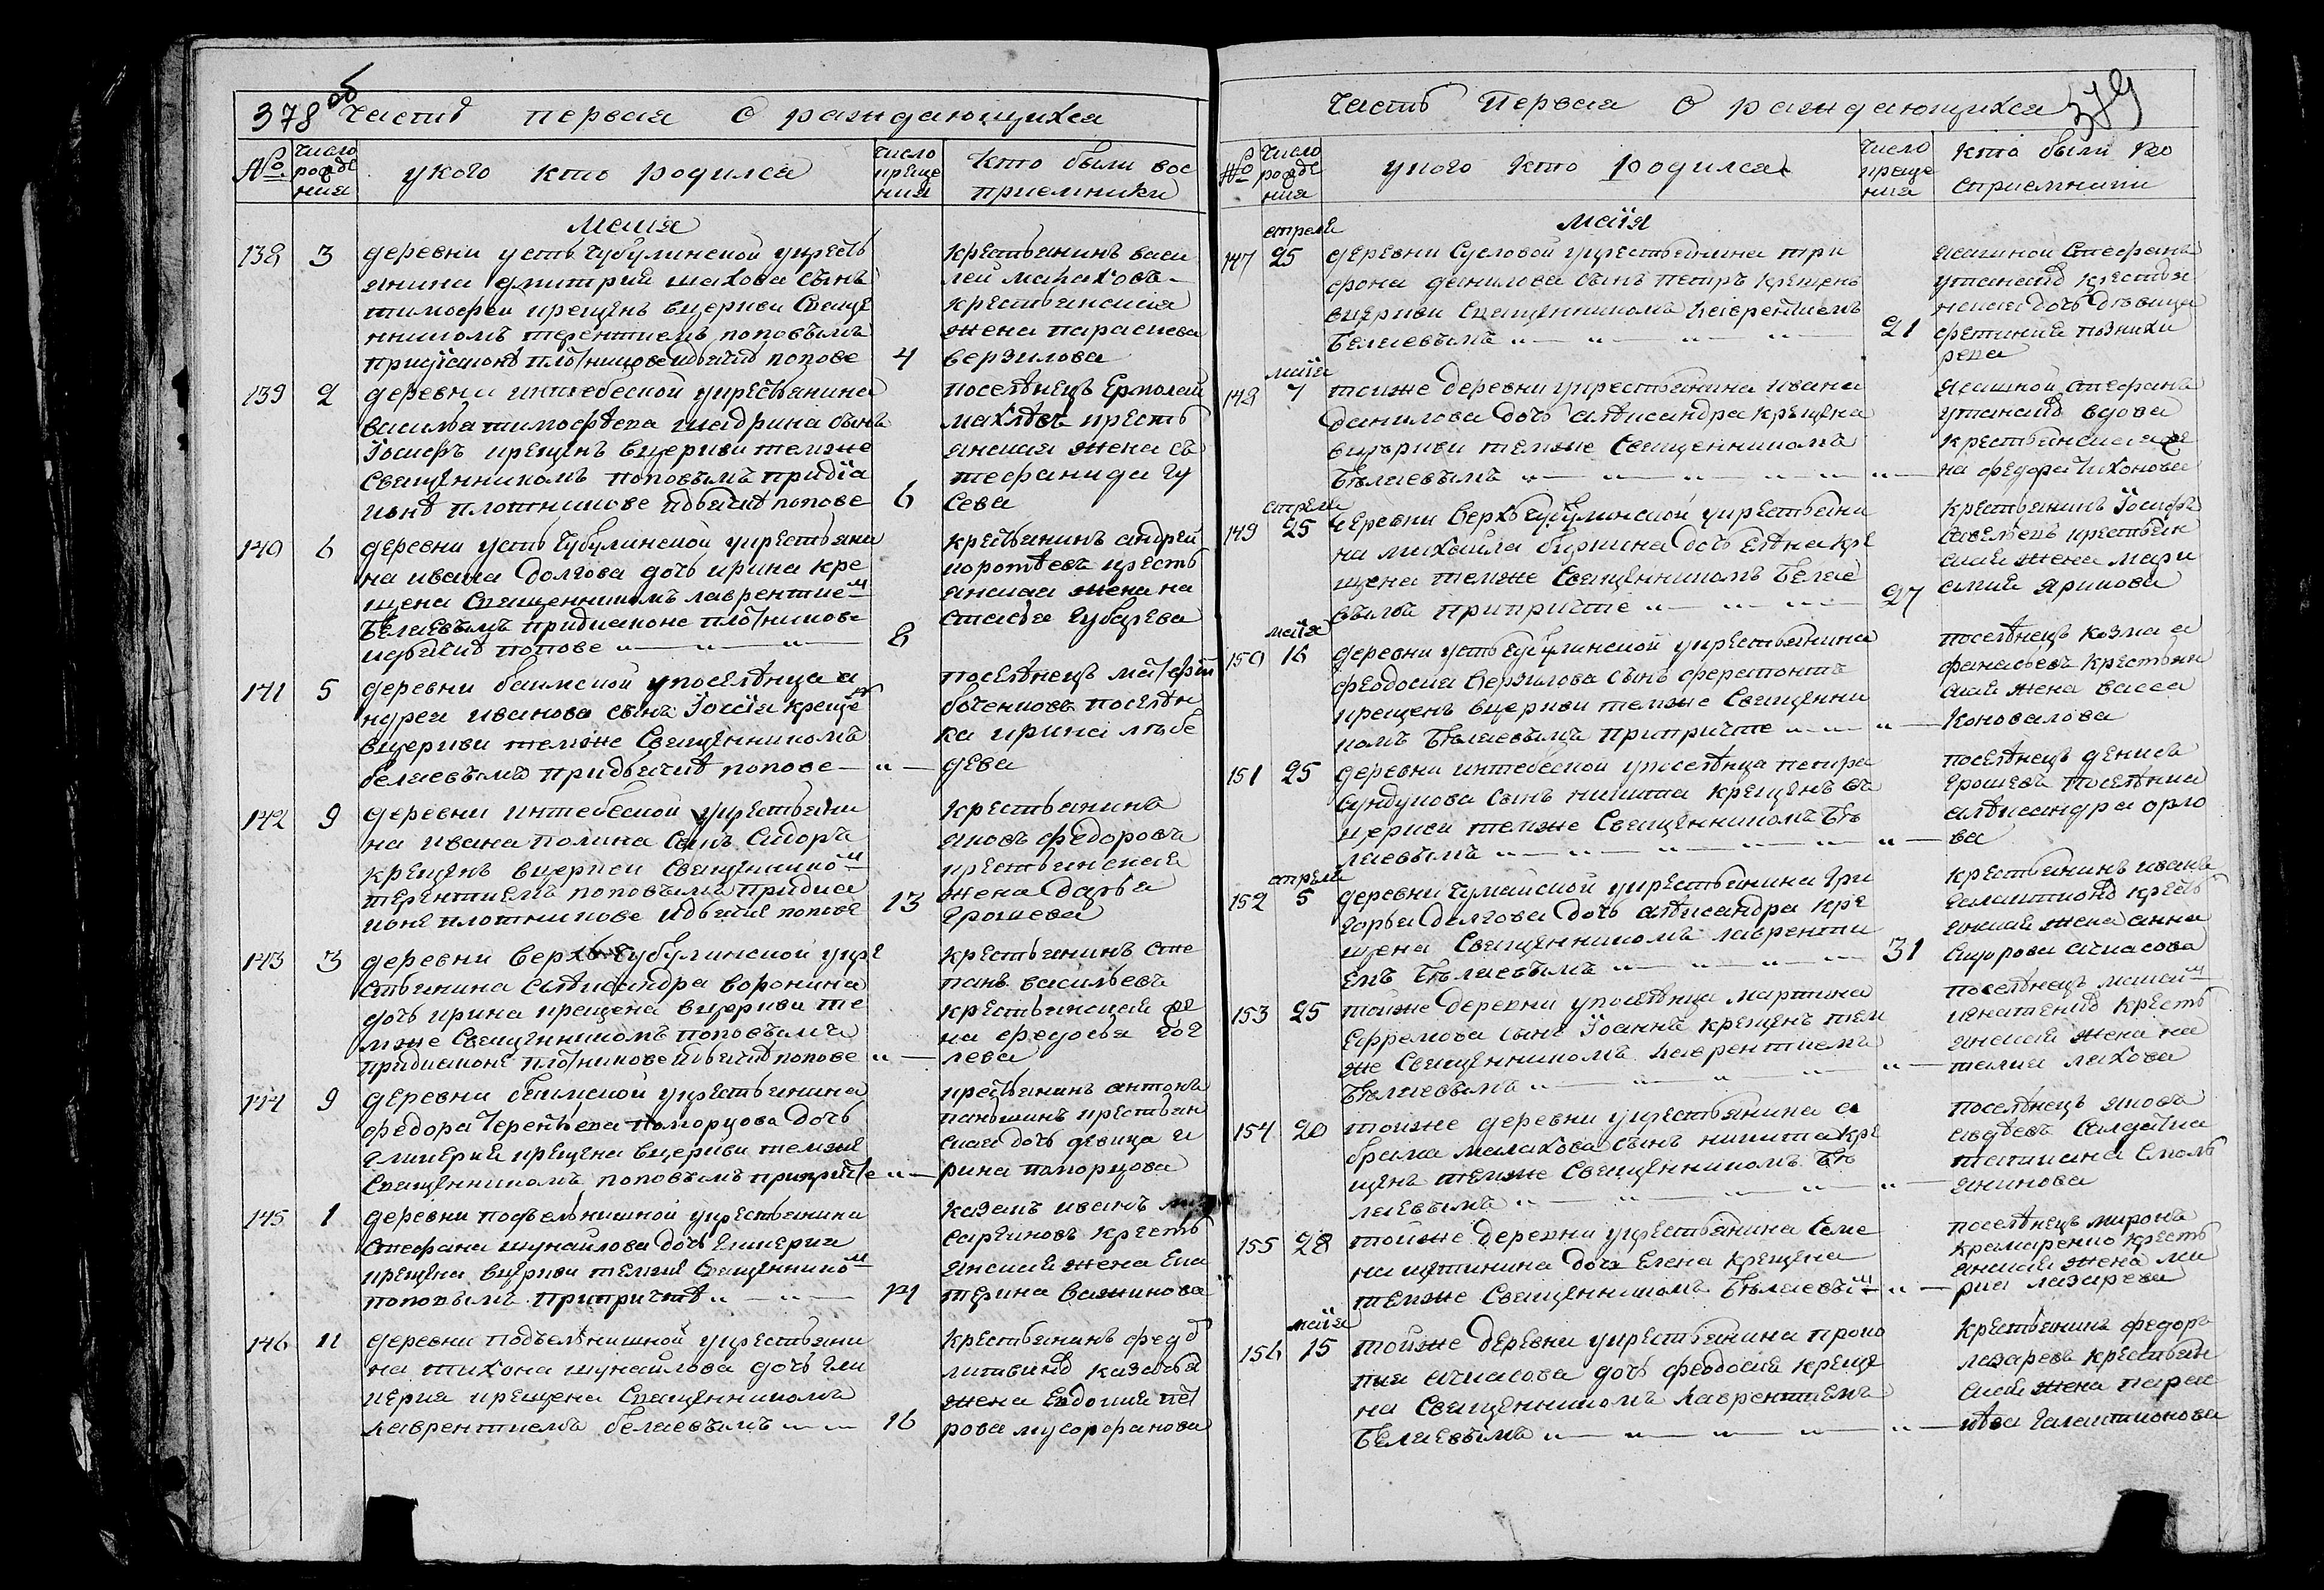 378 об Часть первая О раждающихся
№ число рожде ния
у кого кто родился
число креще ния
Кто были вос приемники
маия
138 3 деревни усть Чубулинской укресть
янина дмитрия махова сынъ
тимофеи крещенъ вцеркви Свяще
нникомъ терентиемъ поповымъ
придiаконѣ плотниковѣ идьячкѣ попове 4
крестьянинъ васи
леи малаховъ
крестьянская
жена параскева
верзилова
139 2 деревни интебеской укрестьянина
василья тимофѣева шадрина сынъ
Iосифъ крещенъ вцеркви темже
Священникомъ поповымъ придiа
конѣ плотникове идьячкѣ попове 6
поселѣнецъ Ермолаи
крестьянская жена сь
тефанида гу
сева
140 6 деревни усть Чубулинской укрестьяни
на ивана Долгова дочь ирина кре
щена Священникомъ лаврентием
Беляевымъ придиаконе плотникове
идьячкѣ попове 8
крестьянинъ андрей
коротѣевъ кресть
янская жена на
стасья губарева
141 5 деревни баимской упоселѣнца а
ндрея иванова сынъ Iосiя креще
вцеркви темже Священникомъ
беляевымъ придьячкѣ попове „
поселѣнецъ матфѣй
боченковъ поселѣн
ка ирина лѣбе
дева
142 9 деревни интебеской укрестьяни
на ивана полина Сынъ Сидоръ
крещенъ вцеркви Священником
терентиемъ поповымъ придиа
коне плотникове идьячке попове 13
крестьянинъ
яковъ федоровъ
крестьянская
жена Дарья
Ерошева
143 3 деревни Верхъ Чубулинской укре
стьянина алѣксандра воронина
дочь ирина крещена вцеркви те
мже Священникомъ поповымъ
придиаконе плотникове идьячкѣ попове „
крестьянинъ сте
панъ васильевъ
крестьянская же
на федосья гог
лева
144 9 деревни баимской укрестьянина
федора Терентьева поморцова дочь
гликерия крещена вцеркви темже
Священникомъ поповымъ припричте „
крестьянинъ антонъ
паньшинъ крестьян
ская дочь девица и
рина поморцова
145 1 деревни подъельнишной укрестьянина
Стефана шукаилова дочь гликерия
крещена вцеркви темже Священником
поповымъ припричтѣ 14
казакъ иванъ
саргиновъ кресть
янская жена Ека
терина важинова
146 11 деревни подъелѣнишной укрестьяни
на тихона шукаилова дочь гли
керия крещена Священникомъ
лаврентиемъ беляевымъ 16
крестьянинъ федо
литвинъ казачья
жена Евдокия пет
рова мусорофанова
Часть Первая О раждающихся 379
№ число рожде ния
у кого кто родился
число креще ния
кто были во сприемники
апреля маiя
147 25 деревни Сусловой укрестьянина три
фона данилова сынъ петръ крещенъ
вцеркви священникомъ лаврентиемъ
Беляевымъ 21
ясашной стефанъ
крестья
нская дочь дѣвица
фетиния
маiя
148 7 тоиже деревни укрестьянина ивана
данилова дочь алѣксандра крещена
вцеркви темже Священникомъ
Бѣляевымъ „
ясашной стефанъ
вдова
крестьянская же
на федора тихонова
апреля
149 25 деревни Верхъ Чубулинской укрестьяни
на михаила биркина дочь елѣна кре
щена темже Священникомъ Беляе
вымъ припричте 27
крестьянинъ Iосифъ
савельевъ крестьян
ская жена мари
амия ярикова
маiя
150 16 деревни усть Чубулинской укрестьянина
феодосия верзилова сынъ ферапонтъ
крещенъ вцеркви темже Священни
комъ Бѣляевымъ припричте „
поселѣнецъ козма а
фанасьевъ крестьян
ская жена васса
Коновалова
151 25 деревни интебеской упоселѣнца петра
сундукова сынъ никита крещенъ въ
церкси темже Священникомъ Бѣ
ляевымъ „
поселѣнецъ денисъ
Ерошевъ поселѣнка
алѣксандра орло
ва
апреля
152 5 деревни Чумайской укрестьянина гри
горья Долгова дочь алѣксандра кре
щена Священникомъ лаврентии
емъ Бѣляевымъ 31
крестьянинъ иванъ
галактионъ кресть
янская жена анна
сидорова
153 25 тойже деревни упоселѣнца мартина
Ефремова сынъ Iоаннъ крещенъ тем
же Священникомъ лаврентиемъ
Бѣляевымъ „
поселѣнецъ
кресть
янская жена на
талия махова
154 20 тойже деревни укрестьянина а
брама малахова сынъ никита кре
щенъ темже Священникомъ Бѣ
ляевымъ „
поселѣнецъ яковъ
авдѣевъ солдатка
татиана смоль
яникова
155 28 тойже деревни укрестьянина Семе
на щетинина дочь Елена крещена
темже Священникомъ Бѣляевым „
поселѣнецъ миронъ
крамаренко кресть
янская жена ма
рия лазарева
маiя
156 15 тойже деревни укрестьянина проко
пия дочь феодосия креще
на Священникомъ лаврентиемъ
Беляевымъ „
крестьянинъ федоръ
лазаревъ крестьян
ская жена парас
кѣва галактионова